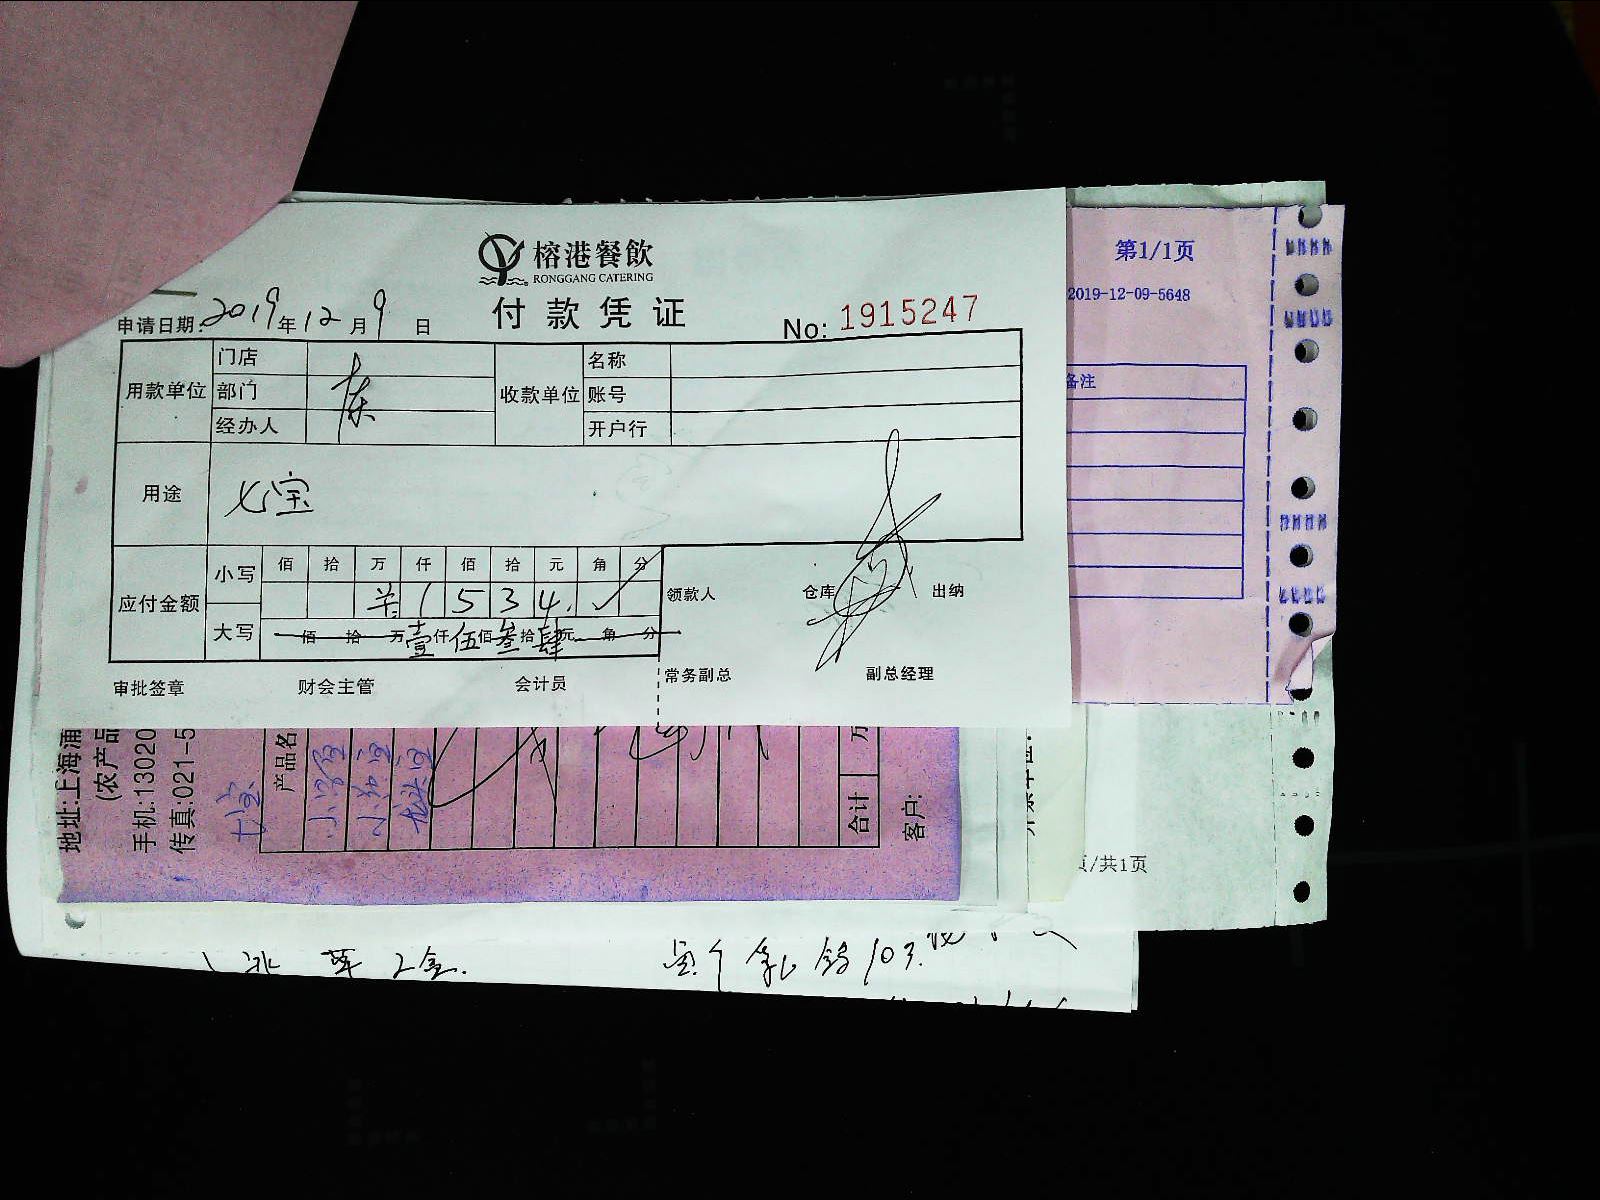 榕港餐飲
RONGGANG CATERING
付款凭证
申请日期:2019年12月9日
No: 1915247
用款单位 门店 收款单位 名称
部门 账号
经办人 开户行
用途 七宝
应付金额 小写 佰 拾 万 仟 佰 拾 元 角 分
1 5 3 4.
大写 佰 拾 万 壹仟 伍佰 叁拾 肆元 角 分
领款人 仓库 出纳
审批签章 财会主管 会计员 常务副总 副总经理
第1/1页
2019-12-09-5648
备注
地址:上海浦
(农产品
手机:13020
传真:021-5
七宝
产品名
万
合计
客户:
页/共1页
103.